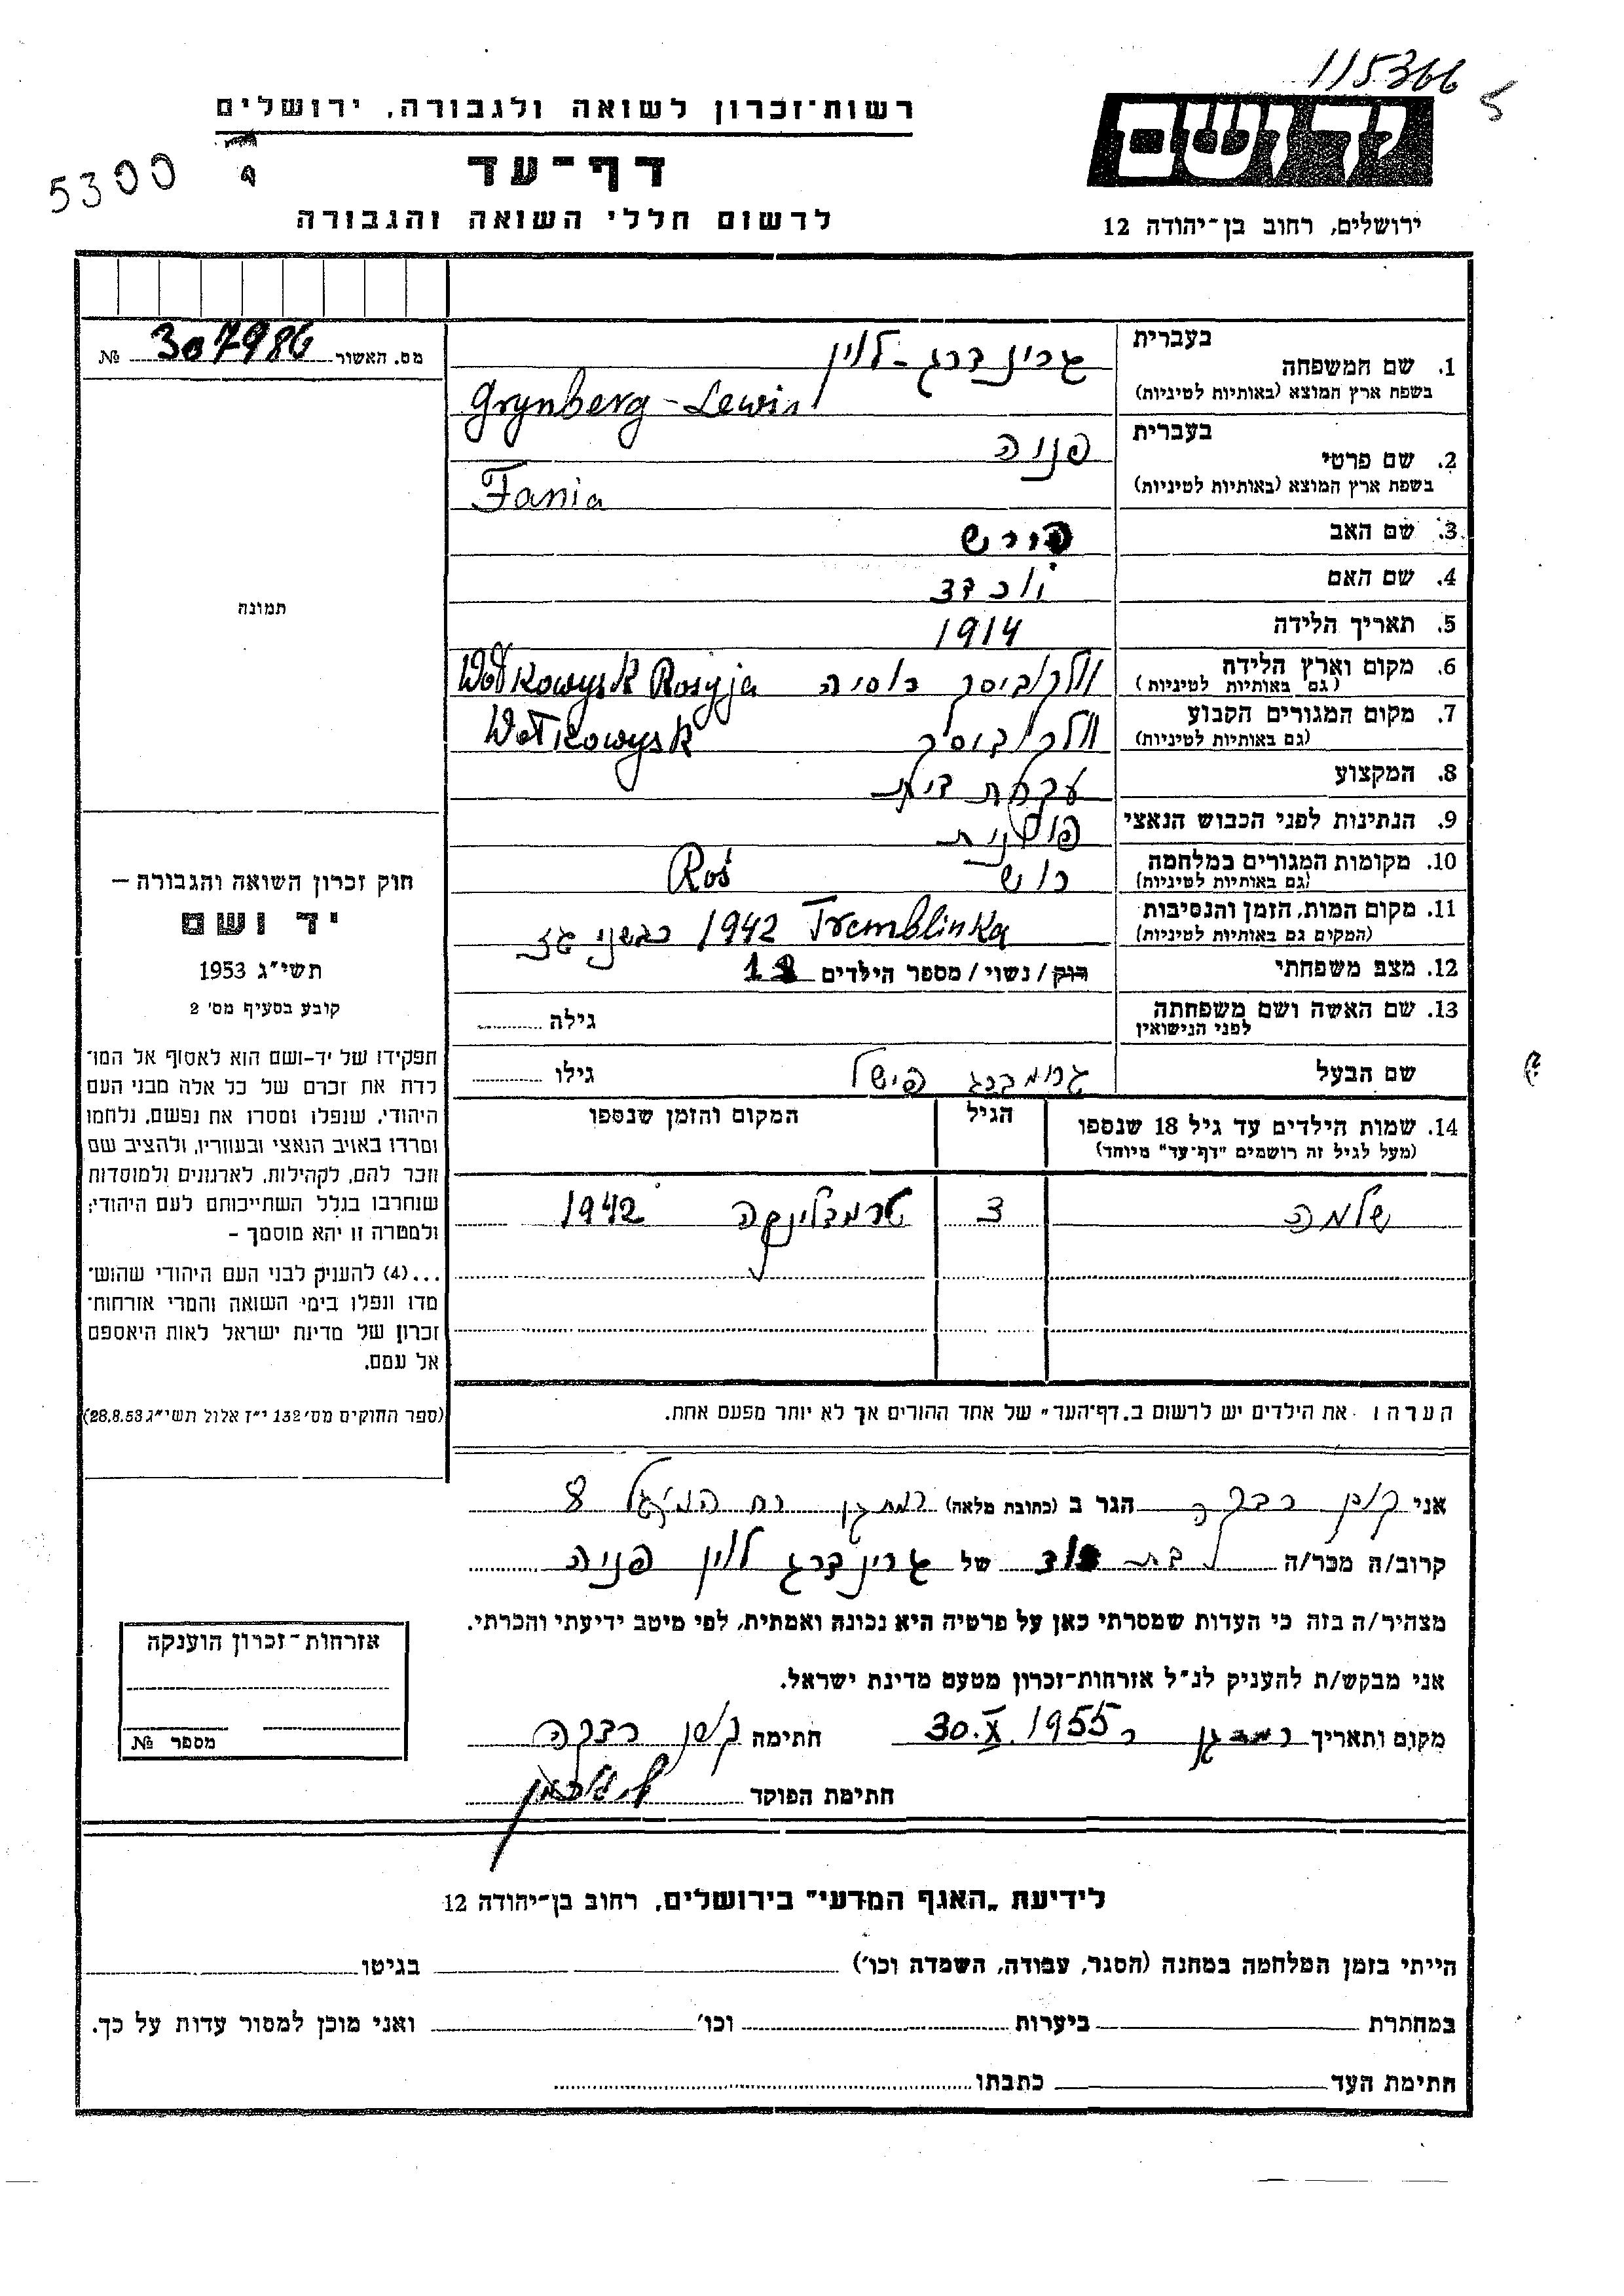 115366 5
רשות־זכרון לשואה ולגבורה, ירושלים
5300
דף־עד
לרשום חללי השואה והגבורה
יד ושם
ירושלים, רחוב בן־יהודה 12
מס. האשור 307986 №
1. שם המשפחה בעברית גרינברג-לוין
בשפת ארץ המוצא (באותיות לטיניות) Grynberg-Lewin
2. שם פרטי בעברית פניה
בשפת ארץ המוצא (באותיות לטיניות) Fania
3. שם האב הירש
4. שם האם
5. תאריך הלידה 1914
6. מקום וארץ הלידה
(גם באותיות לטיניות) וולקוביסק רוסיה Wołkowysk Rosyja
7. מקום המגורים הקבוע
(גם באותיות לטיניות) וולקוביסק Wołkowysk
8. המקצוע עקרת בית
9. הנתינות לפני הכבוש הנאצי פולנית
10. מקומות המגורים במלחמה
(גם באותיות לטיניות) רוש Roś
11. מקום המות, הזמן והנסיבות
(המקום גם באותיות לטיניות) Tremblinka 1942 בכבשני גז
12. מצב משפחתי רוק / נשוי / מספר הילדים 1
13. שם האשה ושם משפחתה
לפני הנישואין גילה
שם הבעל גרינברג פישל גילו
תמונה
14. שמות הילדים עד גיל 18 שנספו
(מעל לגיל זה רושמים "דף־עד" מיוחד)
הגיל
המקום והזמן שנספו
שלמה 3 טרמבלינקה 1942
הערה: את הילדים יש לרשום ב„דף־העד" של אחד ההורים אך לא יותר מפעם אחת.
חוק זכרון השואה והגבורה –
יד ושם
תשי"ג 1953
קובע בסעיף מס' 2
תפקידו של יד-ושם הוא לאסוף אל המו־
לדת את זכרם של כל אלה מבני העם
היהודי, שנפלו ומסרו את נפשם, נלחמו
ומרדו באויב הנאצי ובעוזריו, ולהציב שם
וזכר להם, לקהילות, לארגונים ולמוסדות
שנחרבו בגלל השתייכותם לעם היהודי;
ולמטרה זו יהא מוסמך –
...(4) להעניק לבני העם היהודי שהוש־
מדו ונפלו בימי השואה והמרי אזרחות־
זכרון של מדינת ישראל לאות היאספם
אל עמם.
(ספר החוקים מס' 132 י"ז אלול תשי"ג 28.8.53)
אני רבקה הגר ב (כתובת מלאה) רמת גן רח 8
קרוב/ה מכר/ה בת דוד של גרינברג לוין פניה
מצהיר/ה בזה כי העדות שמסרתי כאן על פרטיה היא נכונה ואמתית, לפי מיטב ידיעתי והכרתי.
אני מבקש/ת להעניק לנ"ל אזרחות־זכרון מטעם מדינת ישראל.
מקום ותאריך רמת גן 30.X.1955 חתימה רבקה
חתימת הפוקד
אזרחות־זכרון הוענקה
מספר №
לידיעת „האגף המדעי" בירושלים, רחוב בן־יהודה 12
הייתי בזמן המלחמה במחנה (הסגר, עבודה, השמדה וכו') בגיטו
במחתרת ביערות וכו' ואני מוכן למסור עדות על כך.
חתימת העד כתבתו